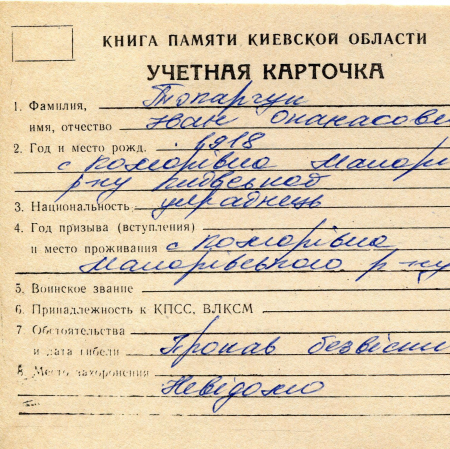 КНИГА ПАМЯТИ КИЕВСКОЙ ОБЛАСТИ
УЧЕТНАЯ КАРТОЧКА
1. Фамилия, Топарчук
имя, отчество Іван Опанасови
2. Год и место рожд. 1918
с Комарівка Макарі
р-ну Київської
3. Национальность українець
4. Год призыва (вступления)
и место проживания с Комарівка
Макарівського р-ну
5. Воинское звание
6. Принадлежность к КПСС, ВЛКСМ
7. Обстоятельства
и дата гибели Пропав безвісти
8. Место захоронения
Невідомо